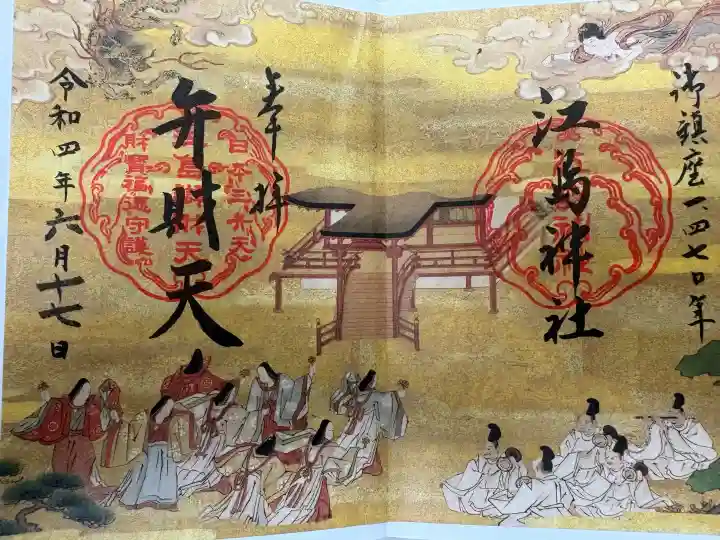 御鎮座一四七〇年
江島神社
奉拝
弁財天
日本三弁天
江島弁財天
財寳福徳守護
令和四年六月十七日